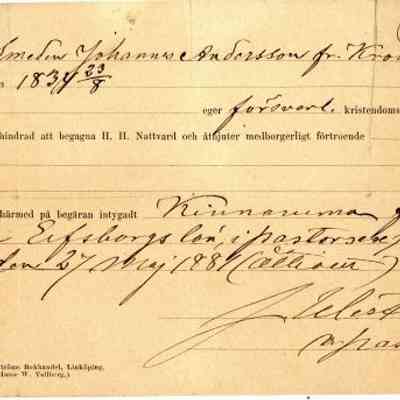 Smeden Johannes Andersson fr. Kro
1834 23/8
eger försvarl. kristendoms
hindrad att begagna H. H. Nattvard och åtnjuter medborgerligt förtroende
härmed på begäran intygadt Kinnarumma
Elfsborgs län, i pastorsexp
den 27 Maj 1881 (åttioen)
J.
Bokhandel, Linköping.
W. Vallberg.)